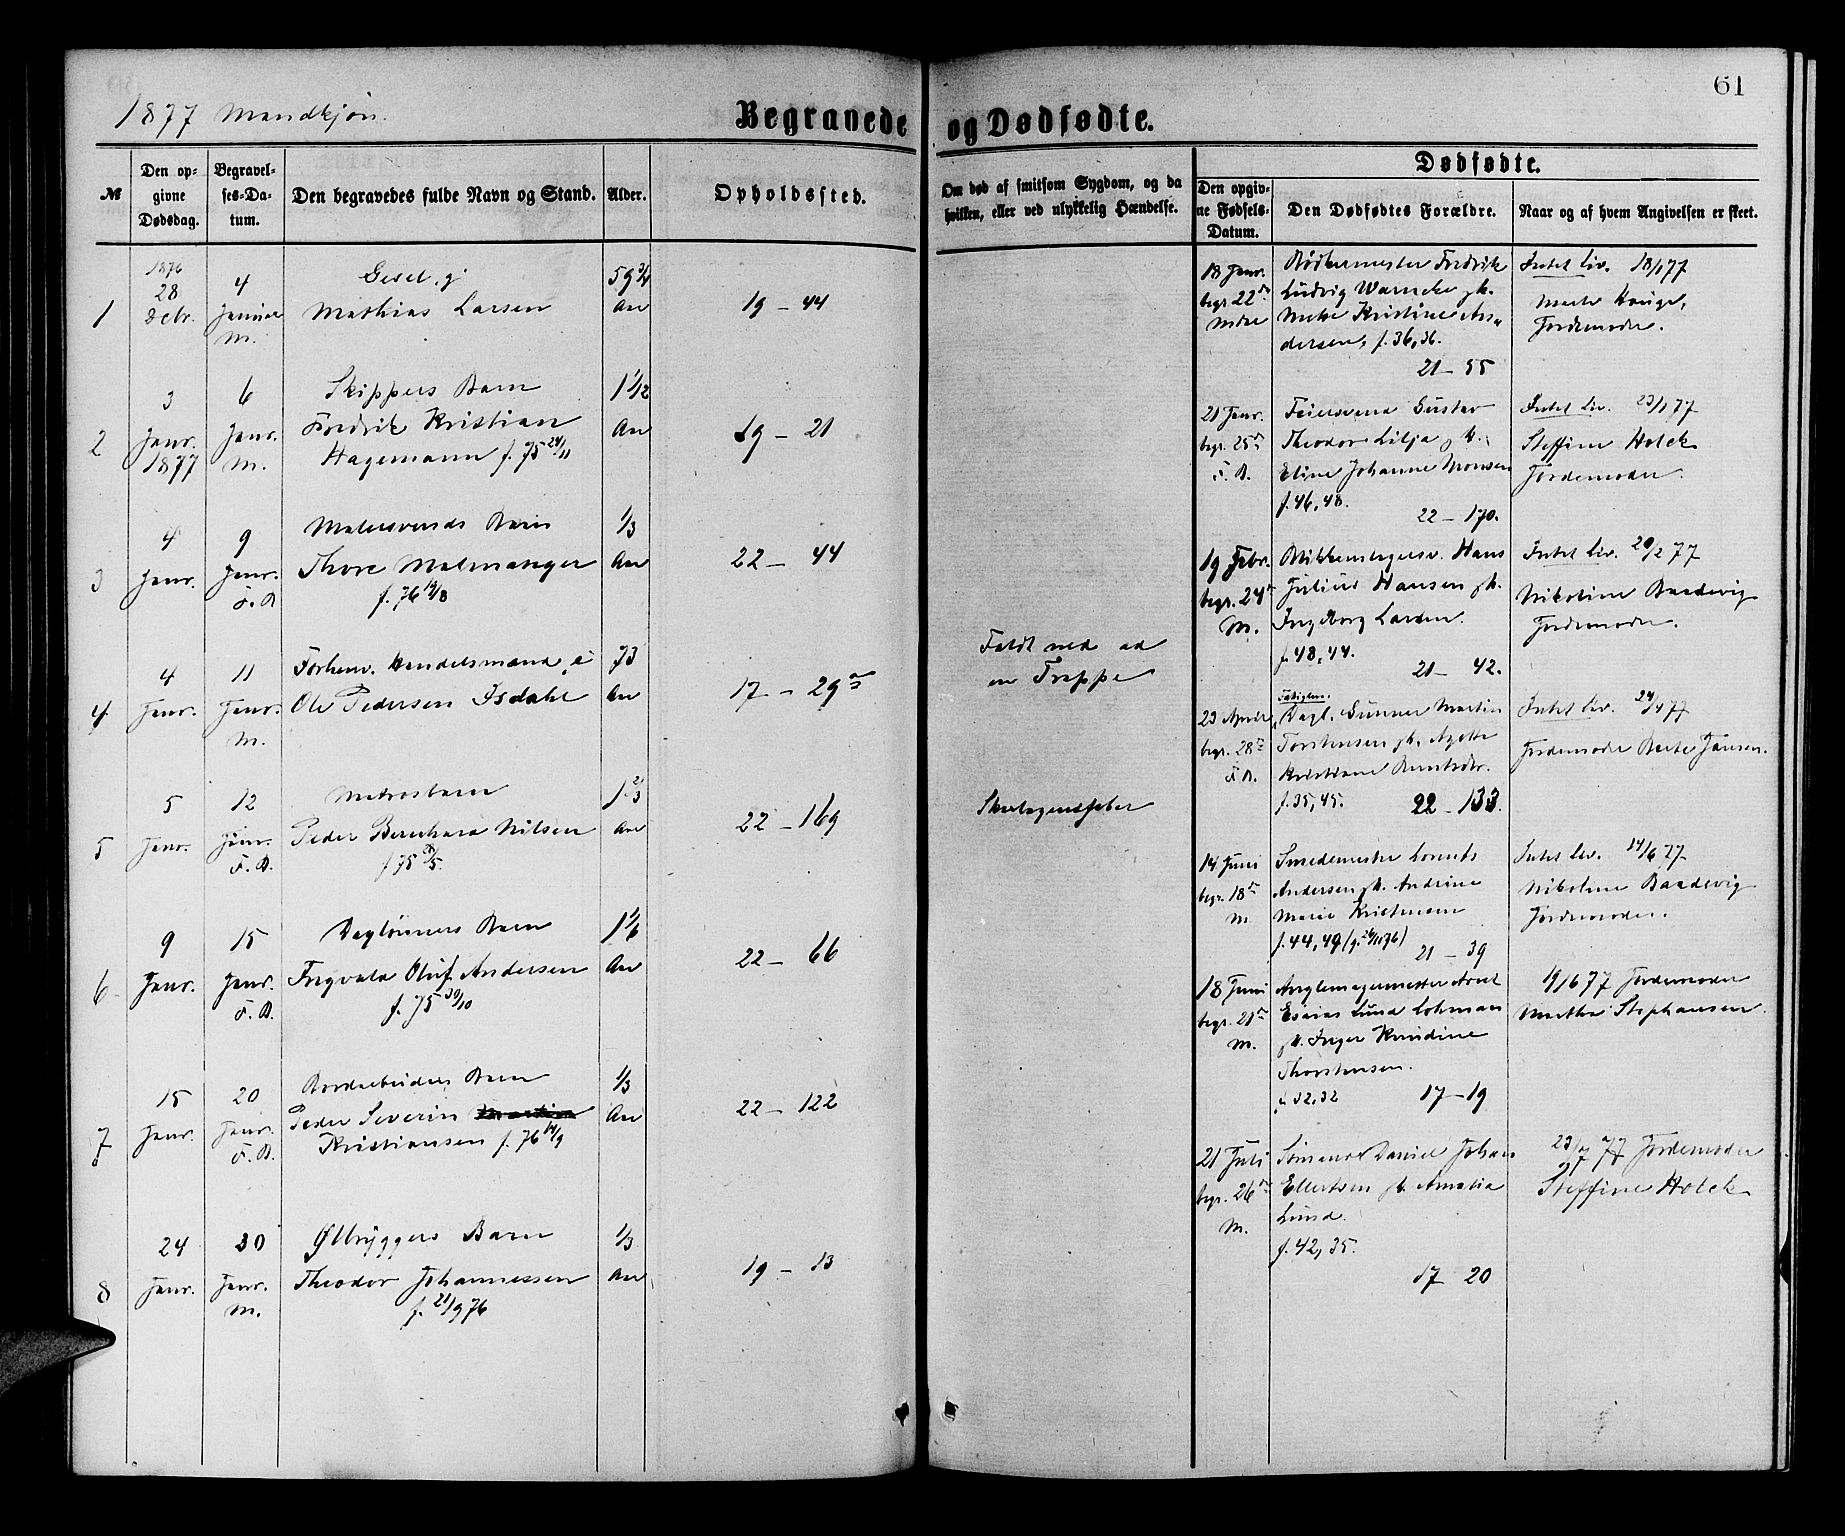 61
1877 Mandkjøn.
Begravede og Dødfødte.
№
Den opgivne Dødsdag.
Begravelses-Datum.
Den begravedes fulde Navn og Stand.
Alder.
Opholdssted.
Om død af smitsom Sygdom, og da hvilken, eller ved ulykkelig Hændelse.
Dødfødte.
Den opgivne Fødsels-Datum.
Den Dødfødtes Forældre.
Naar og af hvem Angivelsen er skeet.
1
1876 28 Debr.
4 Januar M.
Gesel, g
Mathias Larsen
59 3/4 Aar
19 – 44
2
3 Janr. 1877
6 Janr. M.
Skippers Barn
Fredrik Kristian
Hagemann f. 75 24/11
1 1/12 Aar
19 – 21
3
4 Janr.
9 Janr. F. B.
Malersvends Barn
Thore Malmanger
f. 76 19/8
1/3 Aar
22 – 44
4
4 Janr.
11 Janr. M.
Forhenv. Handelsmand, e
Ole Pedersen Isdahl
73 Aar
17 – 29
Faldt ned ad
en Trappe
5
5 Janr.
12 Janr. F. B.
Matrosbarn
Peder Bernhard Nilsen
f 75 /5.
1 2/3 Aar
22 – 169
Skarlagensfeber
6
9 Janr.
15 Janr. F. B.
Daglønners Barn
Ingvald Oluf Andersen
f. 75 30/10
1 1/6 Aar
22 – 66
7
15 Janr.
20 Janr. F. B.
Bordarbeiders Barn
Peder Severin
Kristiansen f. 76 14/9
1/3 Aar
22 – 122
8
24 Janr.
30 Janr. M.
Ølbryggers Barn
Theodor Johannessen
f. 21/9 76
1/3 Aar
19 – 13
18 Janr.
begr. 22de
Bødkermester Fredrik
Ludvig Warncke gk.
Mette Kristine An-
dersen, f. 36, 36.
21 – 55
Intet liv. 18/1 77
Marte Hauge,
Jordemoder.
21 Janr.
begr. 25de
F. B.
Feiersvend Gustav
Theodor Lilja gk.
Eline Johanne Monsen
f. 46, 48.
22 – 170.
Intet liv. 23/1 77
Steffine Holck
Jordemoder.
19 Febr.
begr. 24de
M.
Blikkenslagersv. Hans
Julius Hansen gk.
Ingeborg Larsen.
f. 48, 44.
21 – 42.
Intet liv. 20/2 77
Nikoline Baadsvig
Jordemoder.
23 April
begr. 28de
F. B.
Fattiglem.
Dagl. Gunner Martin
Torstensen gk. Agethe
Kristiane Berntsdtr.
f. 35, 45.
22 – 133.
Intet liv. 24/4 77
Jordemoder Berte Jansen.
14 Juni
begr. 18de
M
Smedemester Lorents
Andersen gk. Andrine
Marie Kristensen
f. 44, 49 (g. 26/11 76)
21 – 39
Intet liv. 14/6 77
Nikoline Baadsvig
Jordemoder.
18 Juni
begr. 21de
M.
Lund Lohmann
gk. Inger Randine
Thorstensen.
f. 32, 32
17 – 19
19/6 77 Jordemoder
Marthe Stephansen.
21 Juli
begr. 26de
M.
Sømand Daniel Johan
Ellertsen gk. Amalia
Lund.
f. 42, 35.
17 20
23/7 77 Jordemoder
Steffine Holck